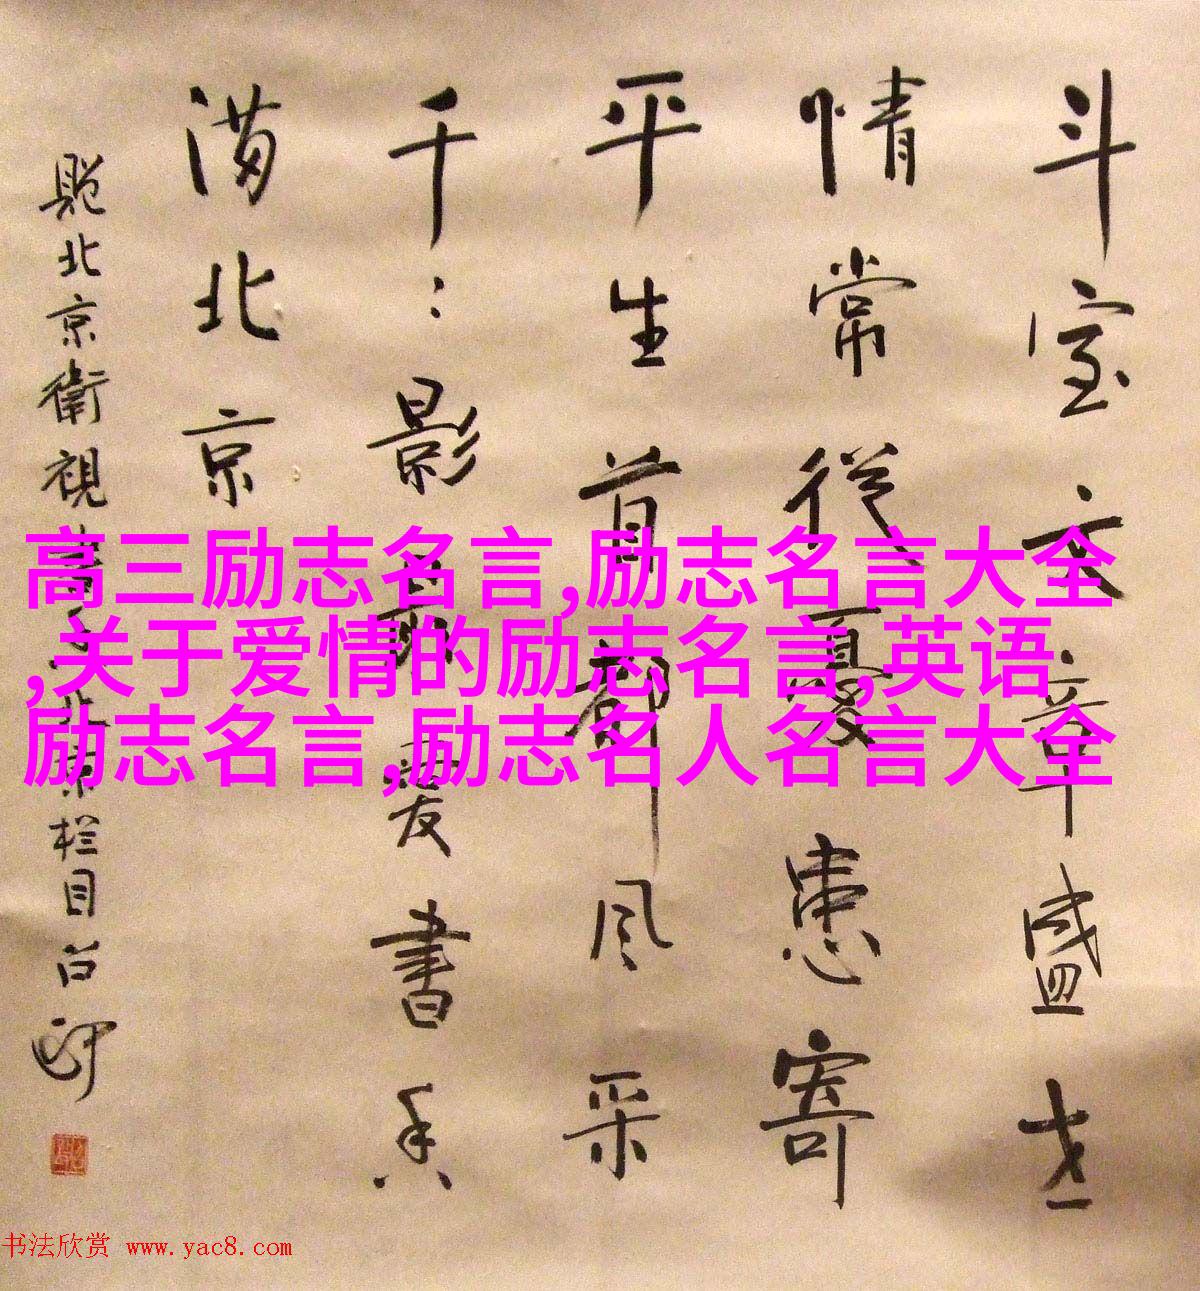 斗室文章盛世
情常從憂患寄
平生首都风采
千〻影愛書香
满北京
題北京衛視北京栏目
高三励志名言,励志名言大全
,关于爱情的励志名言,英语
励志名言,励志名人名言大全
书法欣赏 www.yac8.com